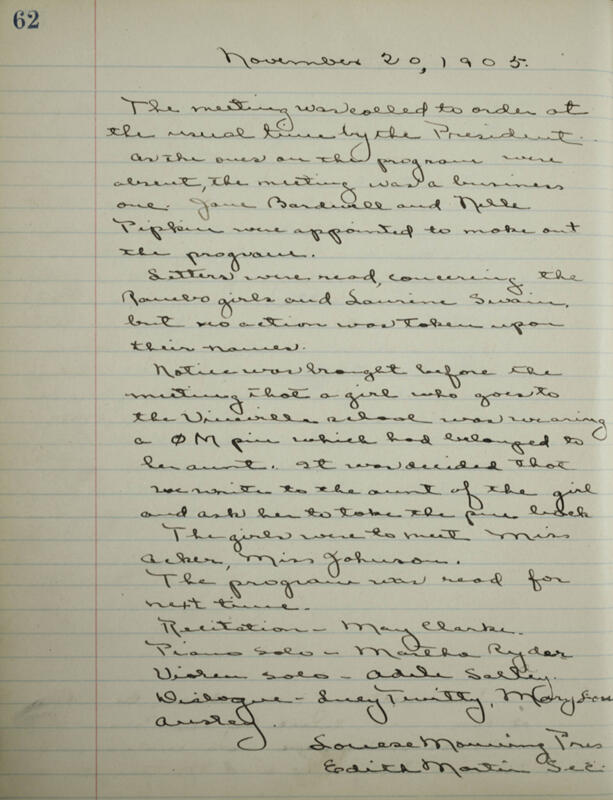 62
November 20, 1905.
The meeting was called to order at
the usual time by the President.
As the ones on the program were
absent, the meeting was a business
one. Jane Bardwell and Nelle
Pipkin were appointed to make out
the program.
Letters were read, concering the
Rambo girls and Laurine Swain,
but no action was taken upon
their names.
Notice was brought before the
meeting that a girl who goes to
the Vineville school was wearing
a ΦM pin which had belonged to
her aunt. It was decided that
we write to the aunt of the girl
and ask her to take the pin back
The girls were to meet Miss
Acker, Miss Johnson.
The program was read for
next time.
Recitation - May Clarke.
Piano Solo - Martha Ryder
Violin solo - Adele Salley.
Dialogue - Lucy Twitty, Mary Lou
Ansley.
Louese Monning Pres
Edith Martin Sec.